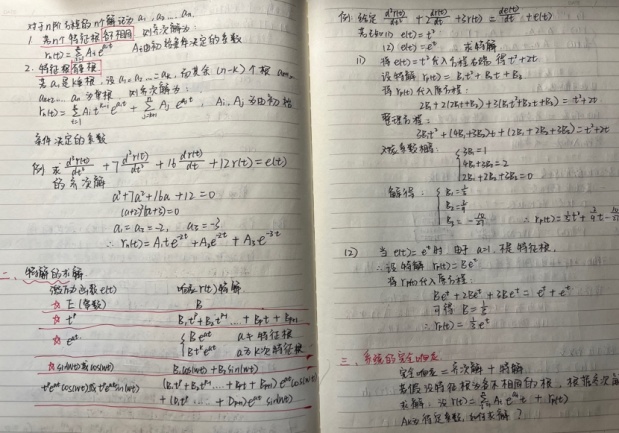 对于n阶方程的n个解记为a₁,a₂…aₙ
1. 若n个特征根各不相同 则齐次解为
rₕ(t)=Σ Aᵢe^{aᵢt} Aᵢ由初始条件决定的系数
2. 特征根有重根
若a₁是k重根,设a₁=a₂…=aₖ,而其余(n-k)个根
aₖ₊₂…aₙ为单根 则齐次解为:
条件决定的系数
例 求 d³r(t)/dt³ + 7 d²r(t)/dt² + 16 dr(t)/dt + 12r(t)=e(t)
的齐次解
a³+7a²+16a+12=0
(a+2)²(a+3)=0
a₁=a₂=-2, a₃=-3
∴ rₕ(t)=A₁te^{-2t}+A₂e^{-2t}+A₃e^{-3t}
二、特解的求解
激励函数e(t) 响应r(t)特解
☆ E(常数) B
☆ t^p B₁t^p+B₂t^{p-1}+…+B_pt+B_{p+1}
☆ e^{at} { Be^{at} a不是特征根
Bt^ke^{at} a是k次特征根
☆ sin(wt)或cos(wt) B₁cos(wt)+B₂sin(wt)
t^pe^{at}cos(wt)或t^pe^{at}sin(wt) (B₁t^p+B₂t^{p-1}…+B_pt+B_{p+1})e^{at}cos(wt)
+(D₁t^p…+D_{p+1})e^{at}sin(wt)
例: 给定 d²r(t)/dt² + 2 dr(t)/dt + 3r(t) = de(t)/dt + e(t)
若已知 (1) e(t)=t²
(2) e(t)=e^t 求特解
(1) 将e(t)=t²代入方程右端,得t²+2t
设特解 rₚ(t)=B₁t²+B₂t+B₃
将rₚ(t)代入原方程:
2B₁+2(2B₁t+B₂)+3(B₁t²+B₂t+B₃)=t²+2t
整理方程:
3B₁t²+(4B₁+3B₂)t+(2B₁+2B₂+3B₃)=t²+2t
对应系数相等: { 3B₁=1
4B₁+3B₂=2
2B₁+2B₂+3B₃=0
解得: { B₁=1/3
B₂=2/9
B₃=-10/27 ∴ rₚ(t)=1/3t²+2/9t-10/27
(2) 当e(t)=e^t时,由于a=1,不是特征根,
∴设特解 rₚ(t)=Be^t
将rₚ(t)代入原方程:
Be^t+2Be^t+3Be^t=e^t+e^t
可得 B=1/3
∴ rₚ(t)=1/3e^t
三、系统的完全响应
完全响应=齐次解+特解